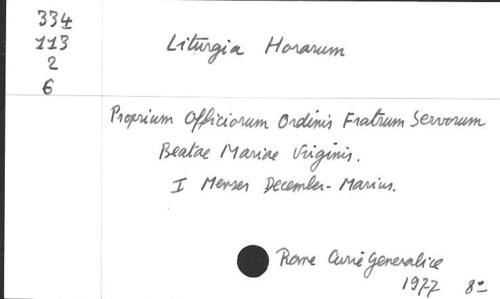 334
113
2
6
Liturgia Horarum
Proprium Officiorum Ordinis Fratrum Servorum
Beatae Mariae Virginis.
I Menses December - Marius.
Rome Curie Generalice
1977 8º